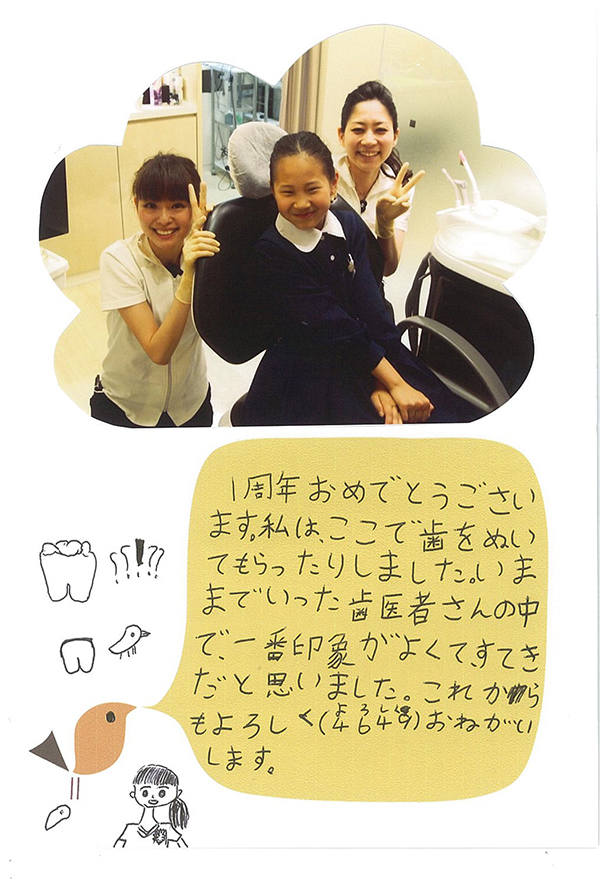 1周年おめでとうござい
ます。私は、ここで歯をぬい
てもらったりしました。いま
までいった歯医者さんの中
で、一番印象がよくて、すてき
だと思いました。これから
もよろしく(4649)おねがい
します。